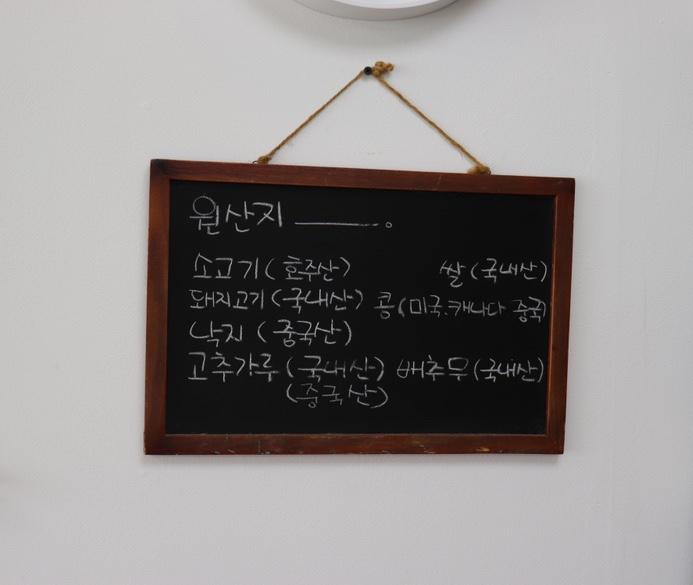 원산지
소고기 (호주산) 쌀 (국내산)
돼지고기 (국내산) 콩 (미국.캐나다 중국)
낙지 (중국산)
고추가루 (국내산) 배추무 (국내산)
(중국산)